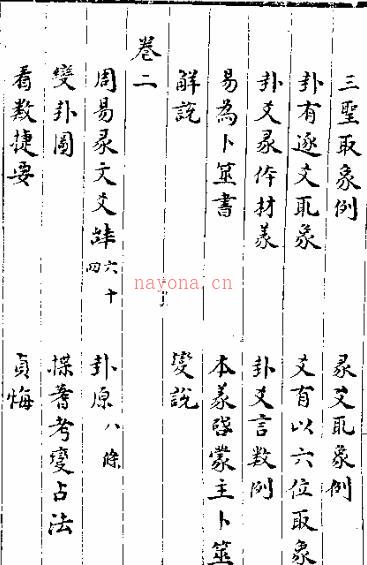 三聖取象例 彖爻取象例
卦有逐爻取象 爻有以六位取象
卦爻彖体材義 卦爻言数例
易為卜筮書 本義啓蒙主卜筮
解說 變說
卷二
周易彖文爻辞六十四 卦原八條
變卦圖 揲蓍考變占法
看数捷要 貞悔
nayona.cn